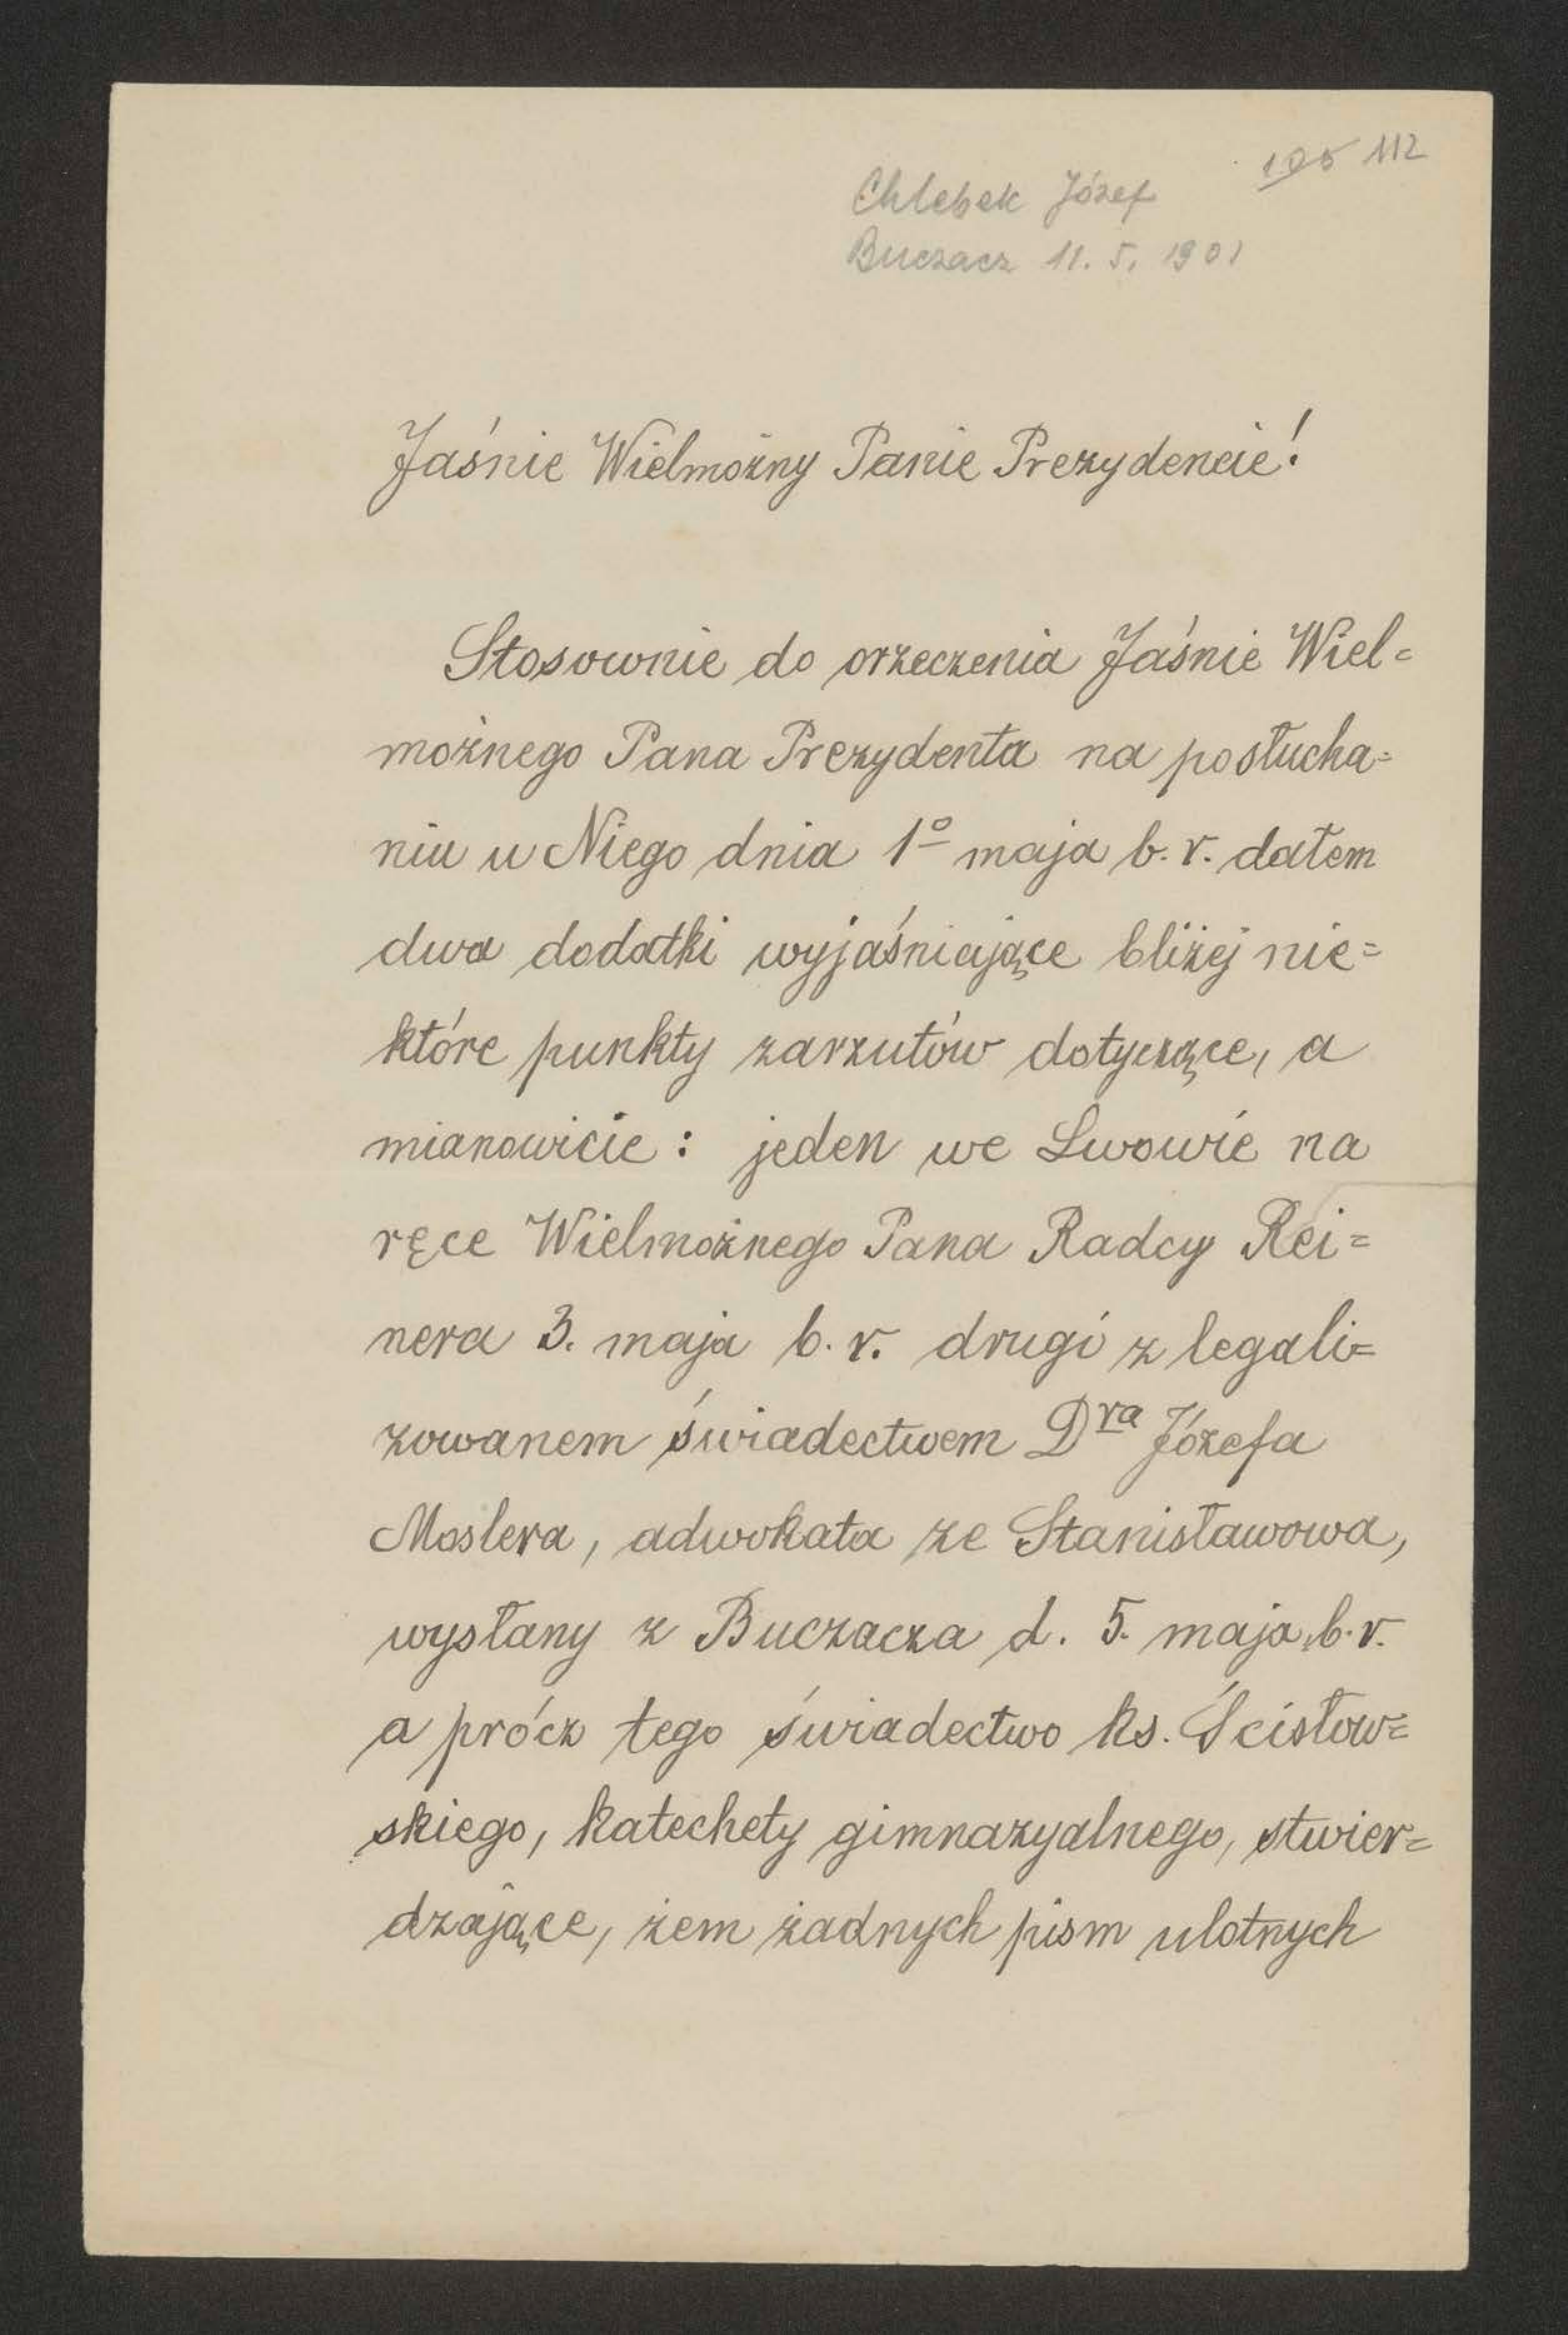 105 112
Chlebek Józef
Buczacz 11. 5. 1901
Jaśnie Wielmożny Panie Prezydencie!
Stosownie do orzeczenia Jaśnie Wiel=
możnego Pana Prezydenta na posłucha=
niu u Niego dnia 1º maja b. r. dałem
dwa dodatki wyjaśniające bliżej nie=
które punkty zarzutów dotyczące, a
mianowicie: jeden we Lwowie na
ręce Wielmożnego Pana Radcy Rei=
nera 3. maja b. r. drugi z legali=
zowanem świadectwem Dra Józefa
Moslera, adwokata ze Stanisławowa,
wysłany z Buczacza d. 5. maja b. r.
a prócz tego świadectwo ks. Ścisłow=
skiego, katechety gimnazyalnego, stwier=
dzające, żem żadnych pism ulotnych